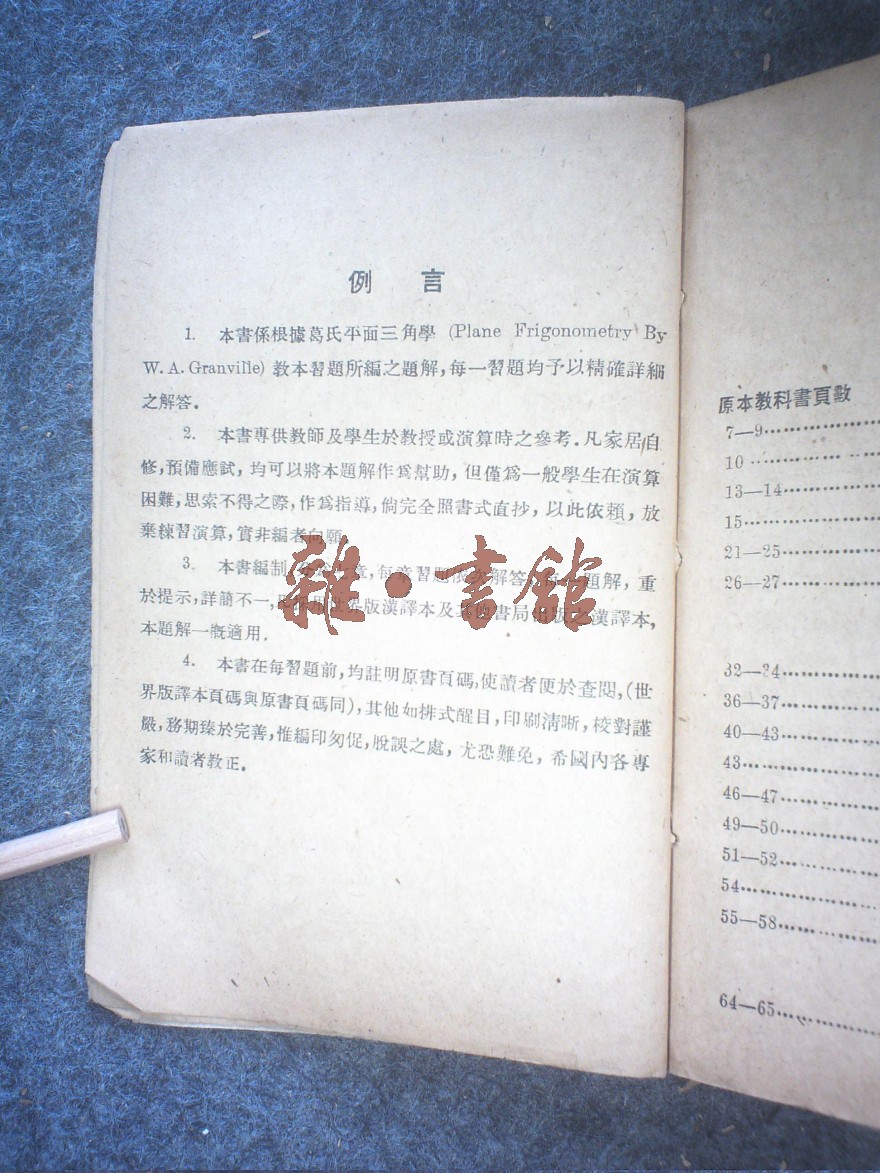 例 言
1. 本書係根據葛氏平面三角學 (Plane Frigonometry By
W. A. Granville) 教本習題所編之題解,每一習題均予以精確詳細
之解答.
2. 本書專供教師及學生於教授或演算時之參考.凡家居自
修,預備應試, 均可以將本題解作爲幫助, 但僅爲一般學生在演算
困難,思索不得之際,作爲指導,倘完全照書式直抄, 以此依賴, 放
棄練習演算,實非編者向願
3. 本書編制 章,每章習題 次解答 題解, 重
於提示,詳簡不一, 世界版漢譯本及其他書局出版之漢譯本,
本題解一概適用.
4. 本書在每習題前,均註明原書頁碼,使讀者便於查閱,(世
界版譯本頁碼與原書頁碼同),其他如排式醒目,印刷清晰,校對謹
嚴,務期臻於完善,惟編印匆促,脫誤之處, 尤恐難免, 希國內各專
家和讀者教正.
雜·書館
原本教科書頁數
7—9
10
13—14
15
21—25
26—27
32—34
36—37
40—43
43
46—47
49—50
51—52
54
55—58
64—65